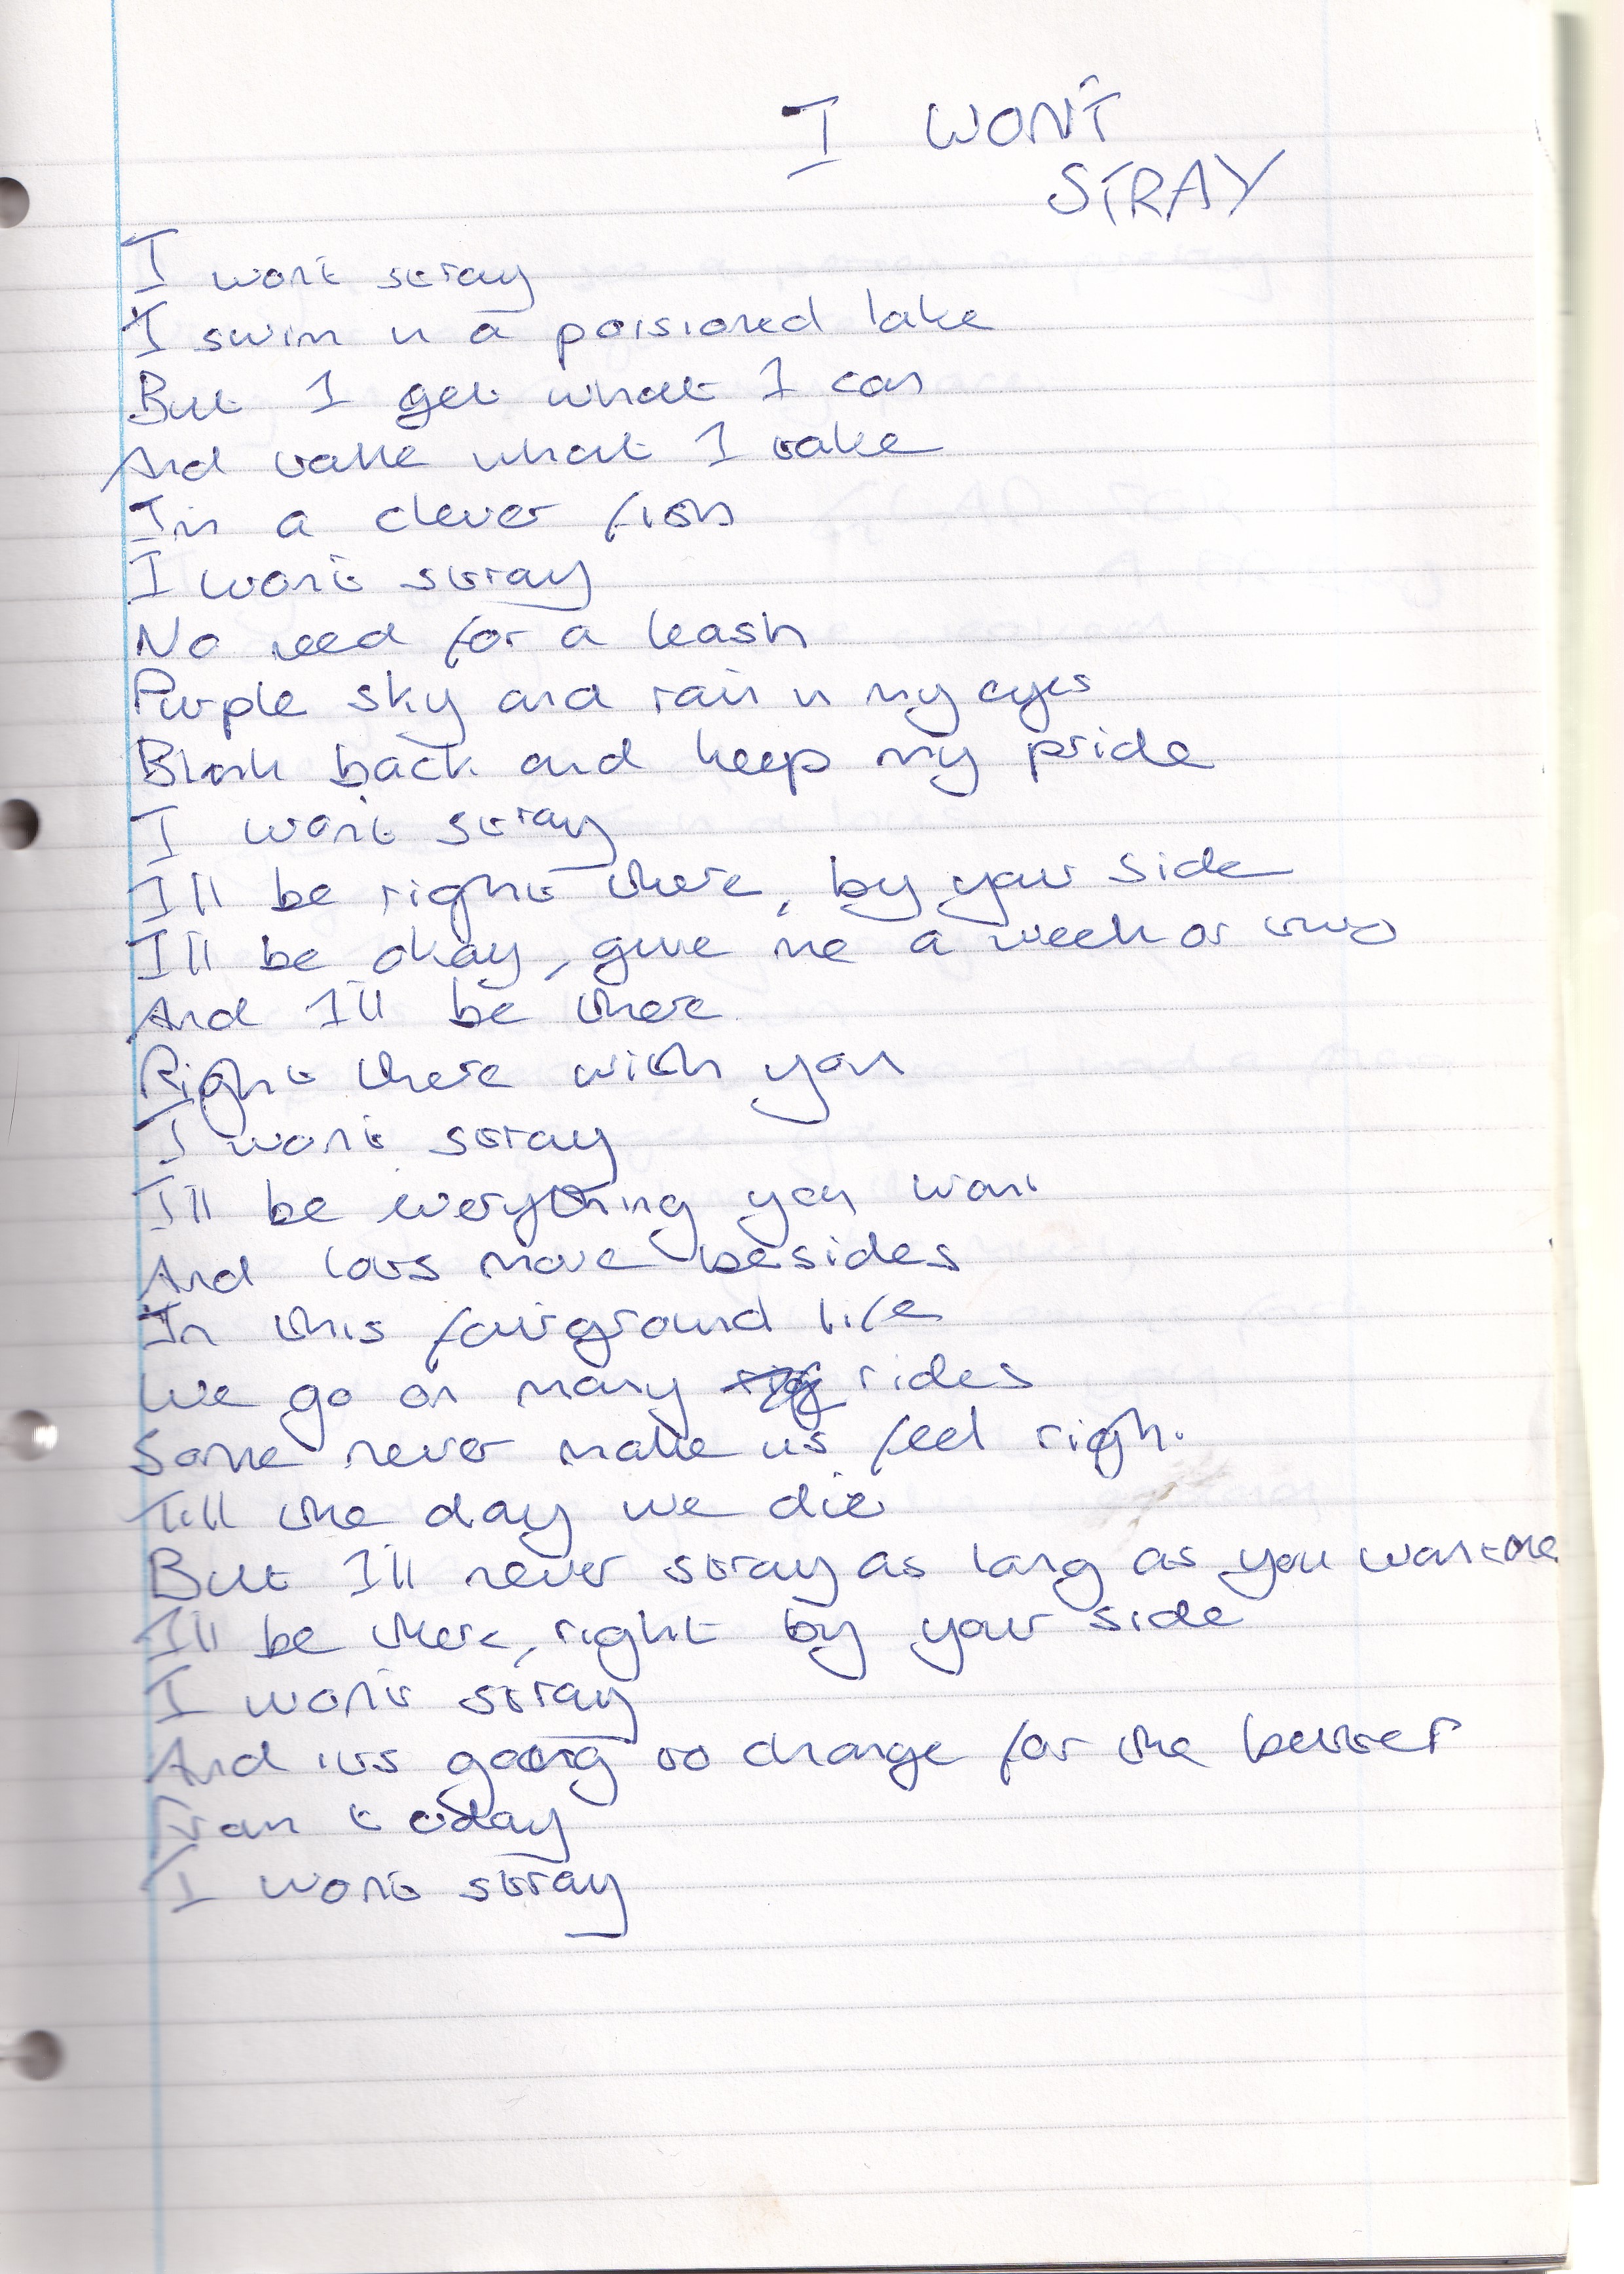 I WON'T
STRAY
I wont stray
I swim in a poisioned lake
But I get what I can
And take what I take
I'm a clever fish
I wont stray
No need for a leash
Purple sky and rain in my eyes
Blink back and keep my pride
I wont stray
I'll be right there, by your side
I'll be okay, give me a week or two
And I'll be there
Right there with you
I wont stray
I'll be everything you want
And lots more besides
In this fairground life
We go on many rides
Some never make us feel right
Till the day we die
But I'll never stray as long as you want me
I'll be there, right by your side
I wont stray
And its going to change for the better
From today
I wont stray